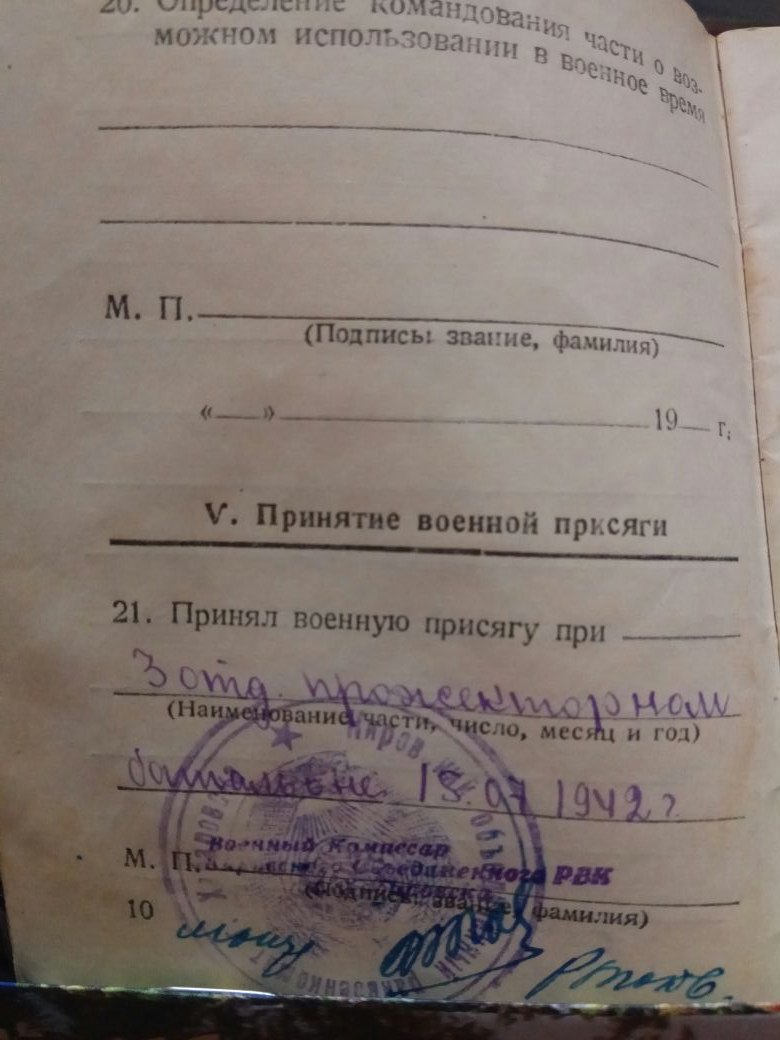 20. Определение командования части о воз-
можном использовании в военное время
М. П.
(Подпись: звание, фамилия)
«___» 19__ г.
V. Принятие военной присяги
21. Принял военную присягу при
3 отд. прожекторном
(Наименование части, число, месяц и год)
батальоне 19.07 1942 г
Военный Комиссар
М. П. Кировского Объединенного РВК
(Подпись: звание, фамилия)
10